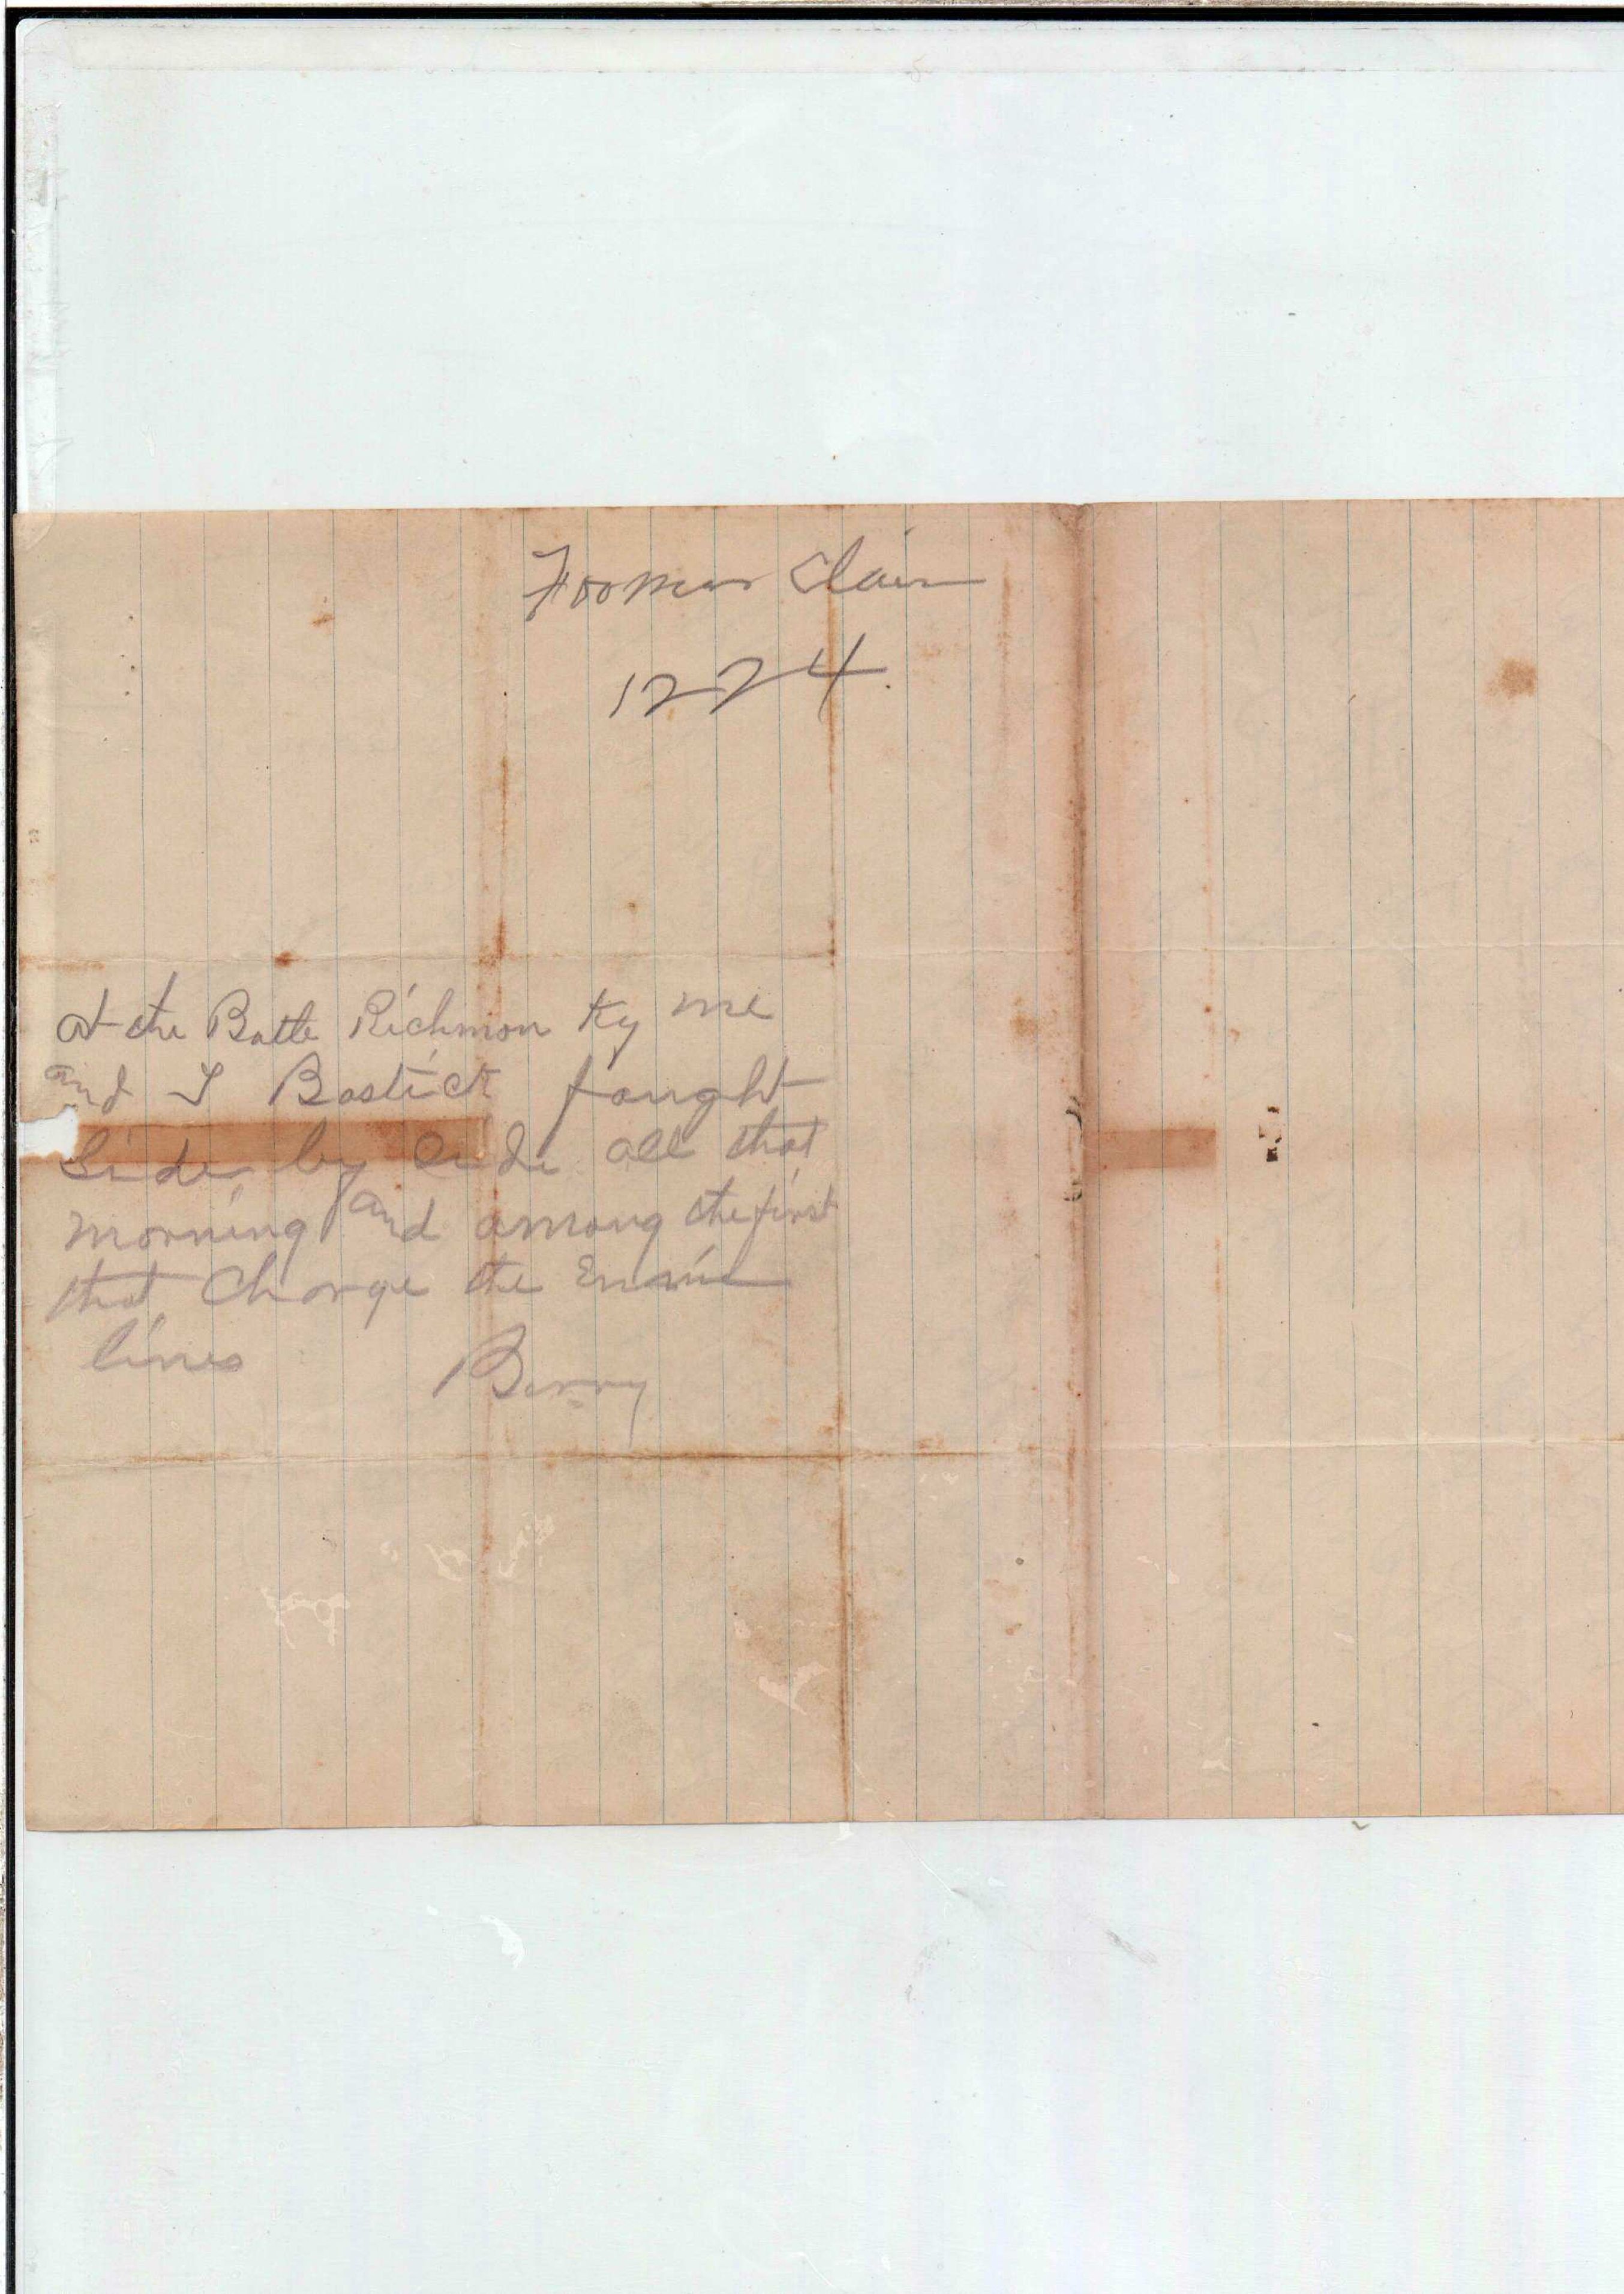 Former Claim
1224.
at the Battle Richmon Ky me
and J Bostick fought
Side by Side all that
morning and among the first
that Charge the
lines Berry